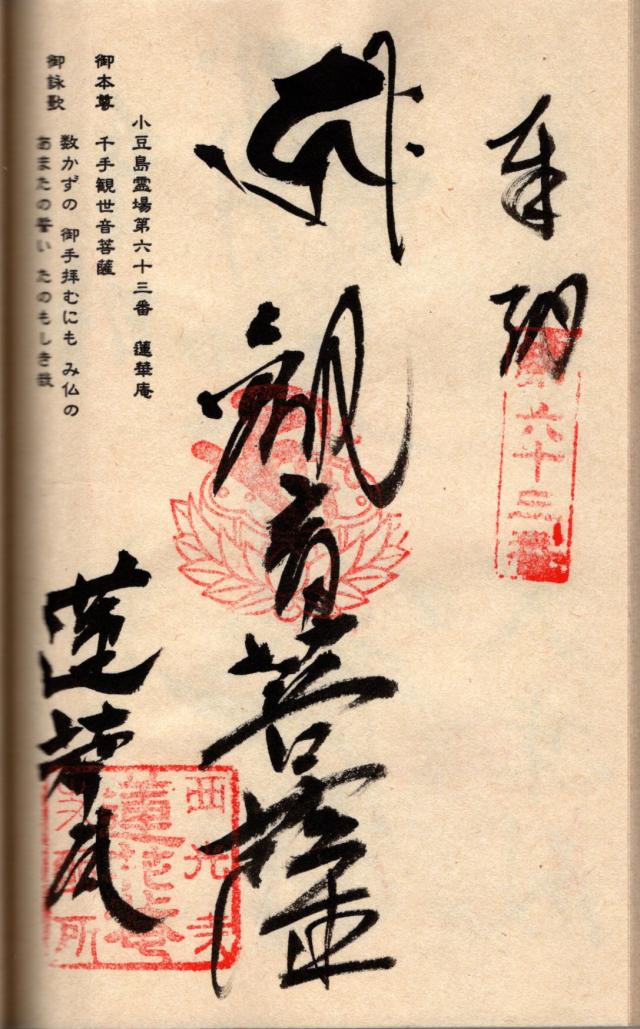 奉納
第六十三番
観音菩薩
小豆島霊場第六十三番 蓮華庵
御本尊 千手観世音菩薩
御詠歌 数かずの 御手拝むにも み仏の
あまたの誓い たのもしき哉
蓮華庵